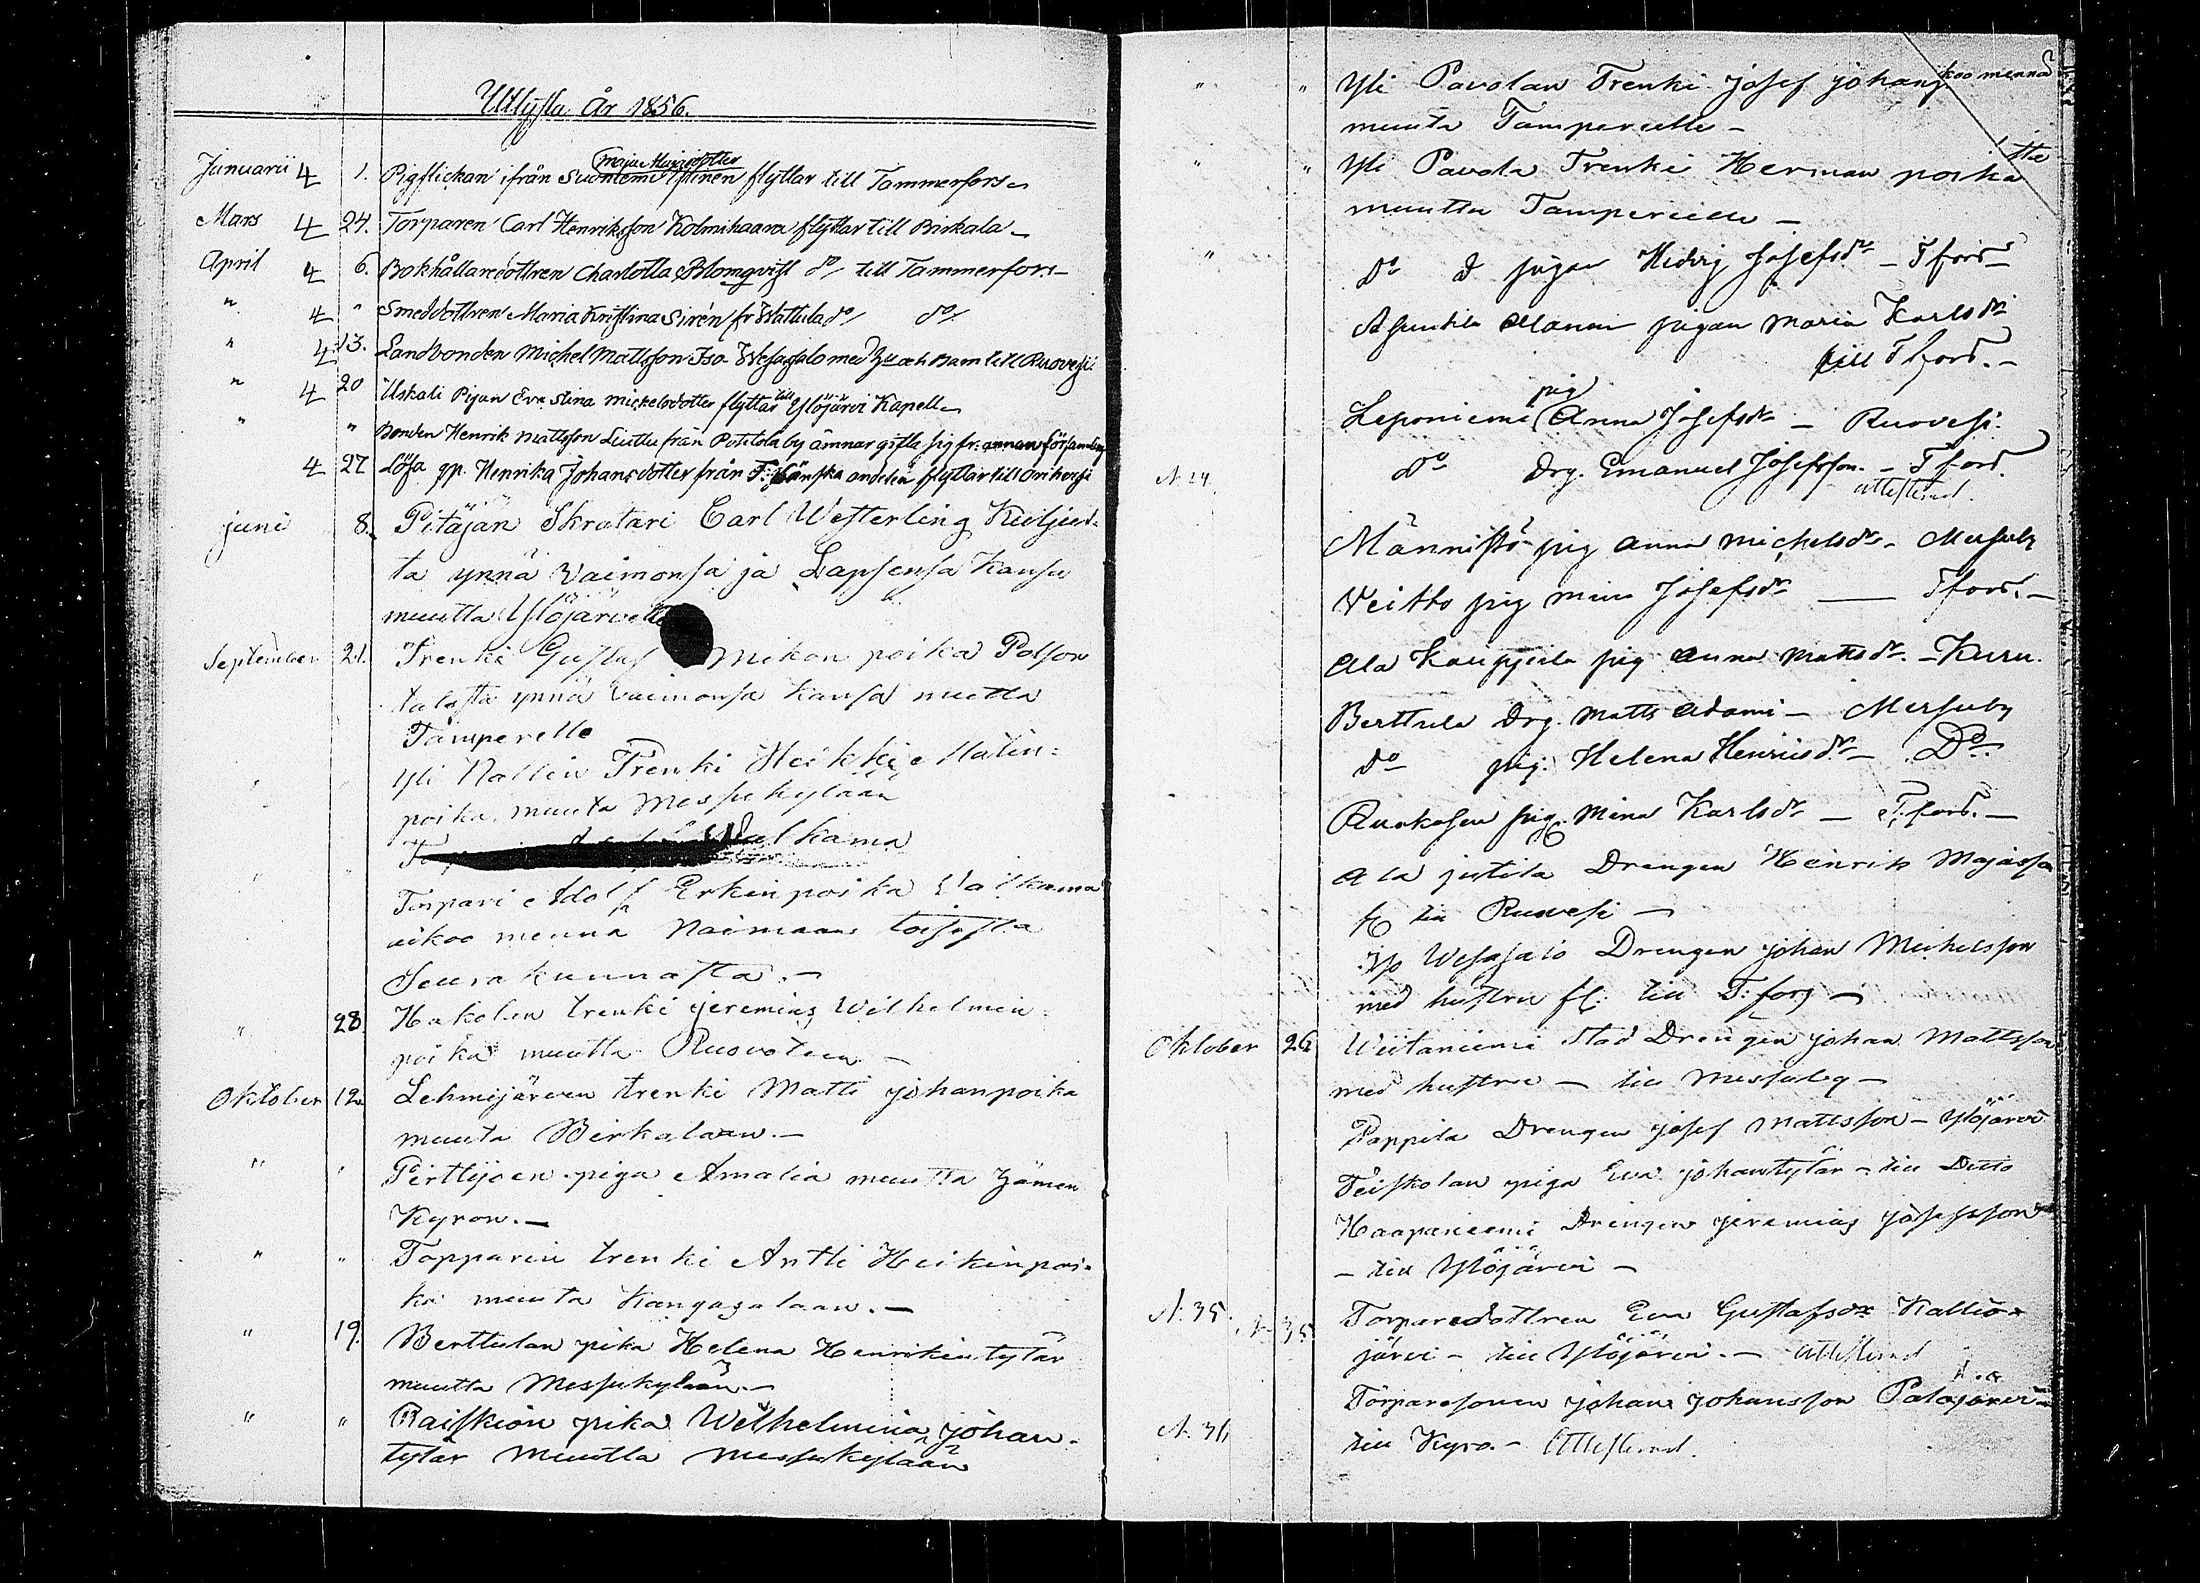 Utlysta År 1856.
Januarii 4 1. Pigflickan ifrån Suoniemi Istinen flyttar till Tammerfors
Maja Henricsdotter
Mars 4 24. Torparen Carl Henriksson Kolmihaara flyttar till Birkala
April 4 6. Bokhållaredottren Charlotta Blomqvist do/ till Tammerfors
" 4 " Smeddottren Maria Kristina Sirén fr Wattula do/ do/
" 4 13. Landbonden Michel Mattsson Iso Wesajalo med hu och Barn till Ruovesi
" 4 20 Uskali Pigan Eva Stina Mickelsdotter flyttar till Ylöjärvi Kapell
" " Bonden Henrik Mattsson Liuttu från Potitola by ämnar gifta sig fr. annan församling
4 27 Lösa qp. Henrika Johansdotter från flyttar till Orihvesi
juni 8. Pitäjän Skratari Carl Westerling Kuljus-
ta ynnä Vaimonsa ja Lapsensa Kansa
muutta Ylöjärvelle
September 21. Trenki Gustaf Mikon poika Polson
talosta ynnä Vaimonsa Kansa muutta
Tamperelle
" " Yli Nallin Trenki Heikki Matin-
poika muuta Messukylään
Walkama
" Torpari Adolf Erkinpoika Walkama
aikoo mennä Naimaan toisesta
Seurakunnasta.
" 28. Hakolan trenki jeremias Wilhelmin-
poika muutta Ruoveteen
Oktober 12. Lehmijärven trenki Matti johanpoika
muuta Birkalaan.
" " Perttijoen piga Amalia muutta Hämen
Kyron.
" " Topparin trenki Antti Heikinpoi-
ka muuta Kangasalaan.
" 19. Berttulan pika Helena Henrikintytär
muutta Messukylään.
" " Raiskion pika Welhelmina johan-
tytär Muutta Messukylään
" " Yli Pavolan Trenki Josef johans koo menna
muuta Tamperelle
" " Yli Pavola Trenki Herman poika
muutta Tamperelle
" do d pigan Hedvig Josefsdr - Tfors
Asuntila Manni pigan Maria Karlsdr
till Tfors.
Leponiemi pig Anna Josefsdr - Ruovesi.
N 24. do Drg. Emanuel Josefsson. - Tfors.
attesterad.
Männistö pig Anna Michelsdr - Messuby
Veitto pig Mina Josefsdr - Tfors.
Ala Kauppila pig Anna Mattsdr. - Kuru.
Berttula Drg. Matts Adami - Messuby
do pig. Helena Henricsdr - Do.
Ruokosen pig. Mina Karlsdr - T.fors.
Ala jutila Drengen Henrik
fl till Ruovesi
Iso Wesajalo Drengen johan Mickelsson
med hustru fl: till T:fors
Oktober 26 Wiitaniemi Stad Drengen johan Mattsson
med hustru - till Messuby
Pappila Drengen josef Mattsson - Ylöjärvi
Teiskolan piga Eva johantytär - till Ditto
Haapaniemi Drengen jeremias josefsson
- till Ylöjärvi -
N. 35. N 35 Torparedottren Eva Gustafsdr Kallio-
järvi - till Ylöjärvi. - attesterad
N. 36 Torparesonen johan johansson Palojärvi
till Kyro. - Attesterad.